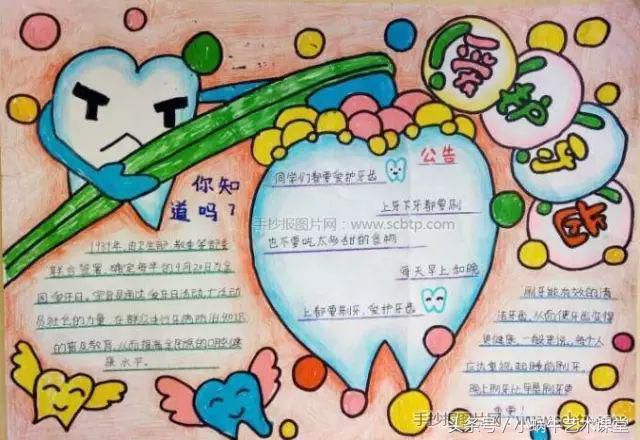 爱护牙齿
你知
道吗？
1989年,由卫生部,教委等部委
联合签署,确定每年的9月20日为全
国爱牙日。宗旨是通过爱牙日活动,广泛动
员社会的力量,在群众中进行牙病防治知识
的普及教育,从而提高全民族的口腔健
康水平。
公告
同学们都要爱护牙齿
上牙下牙都要刷
也不要吃太多甜的食物
每天早上和晚
上都要刷牙,爱护牙齿
手抄报图片网：www.scbtp.com
刷牙能有效的清
洁牙齿,从而使牙齿变得
更健康。一般来说,每个人
应该重视起睡前刷牙,
晚上刷牙比早晨刷牙更
重要！
手抄报图片网：www.scbtp.com
头条号／小蜗牛艺术课堂